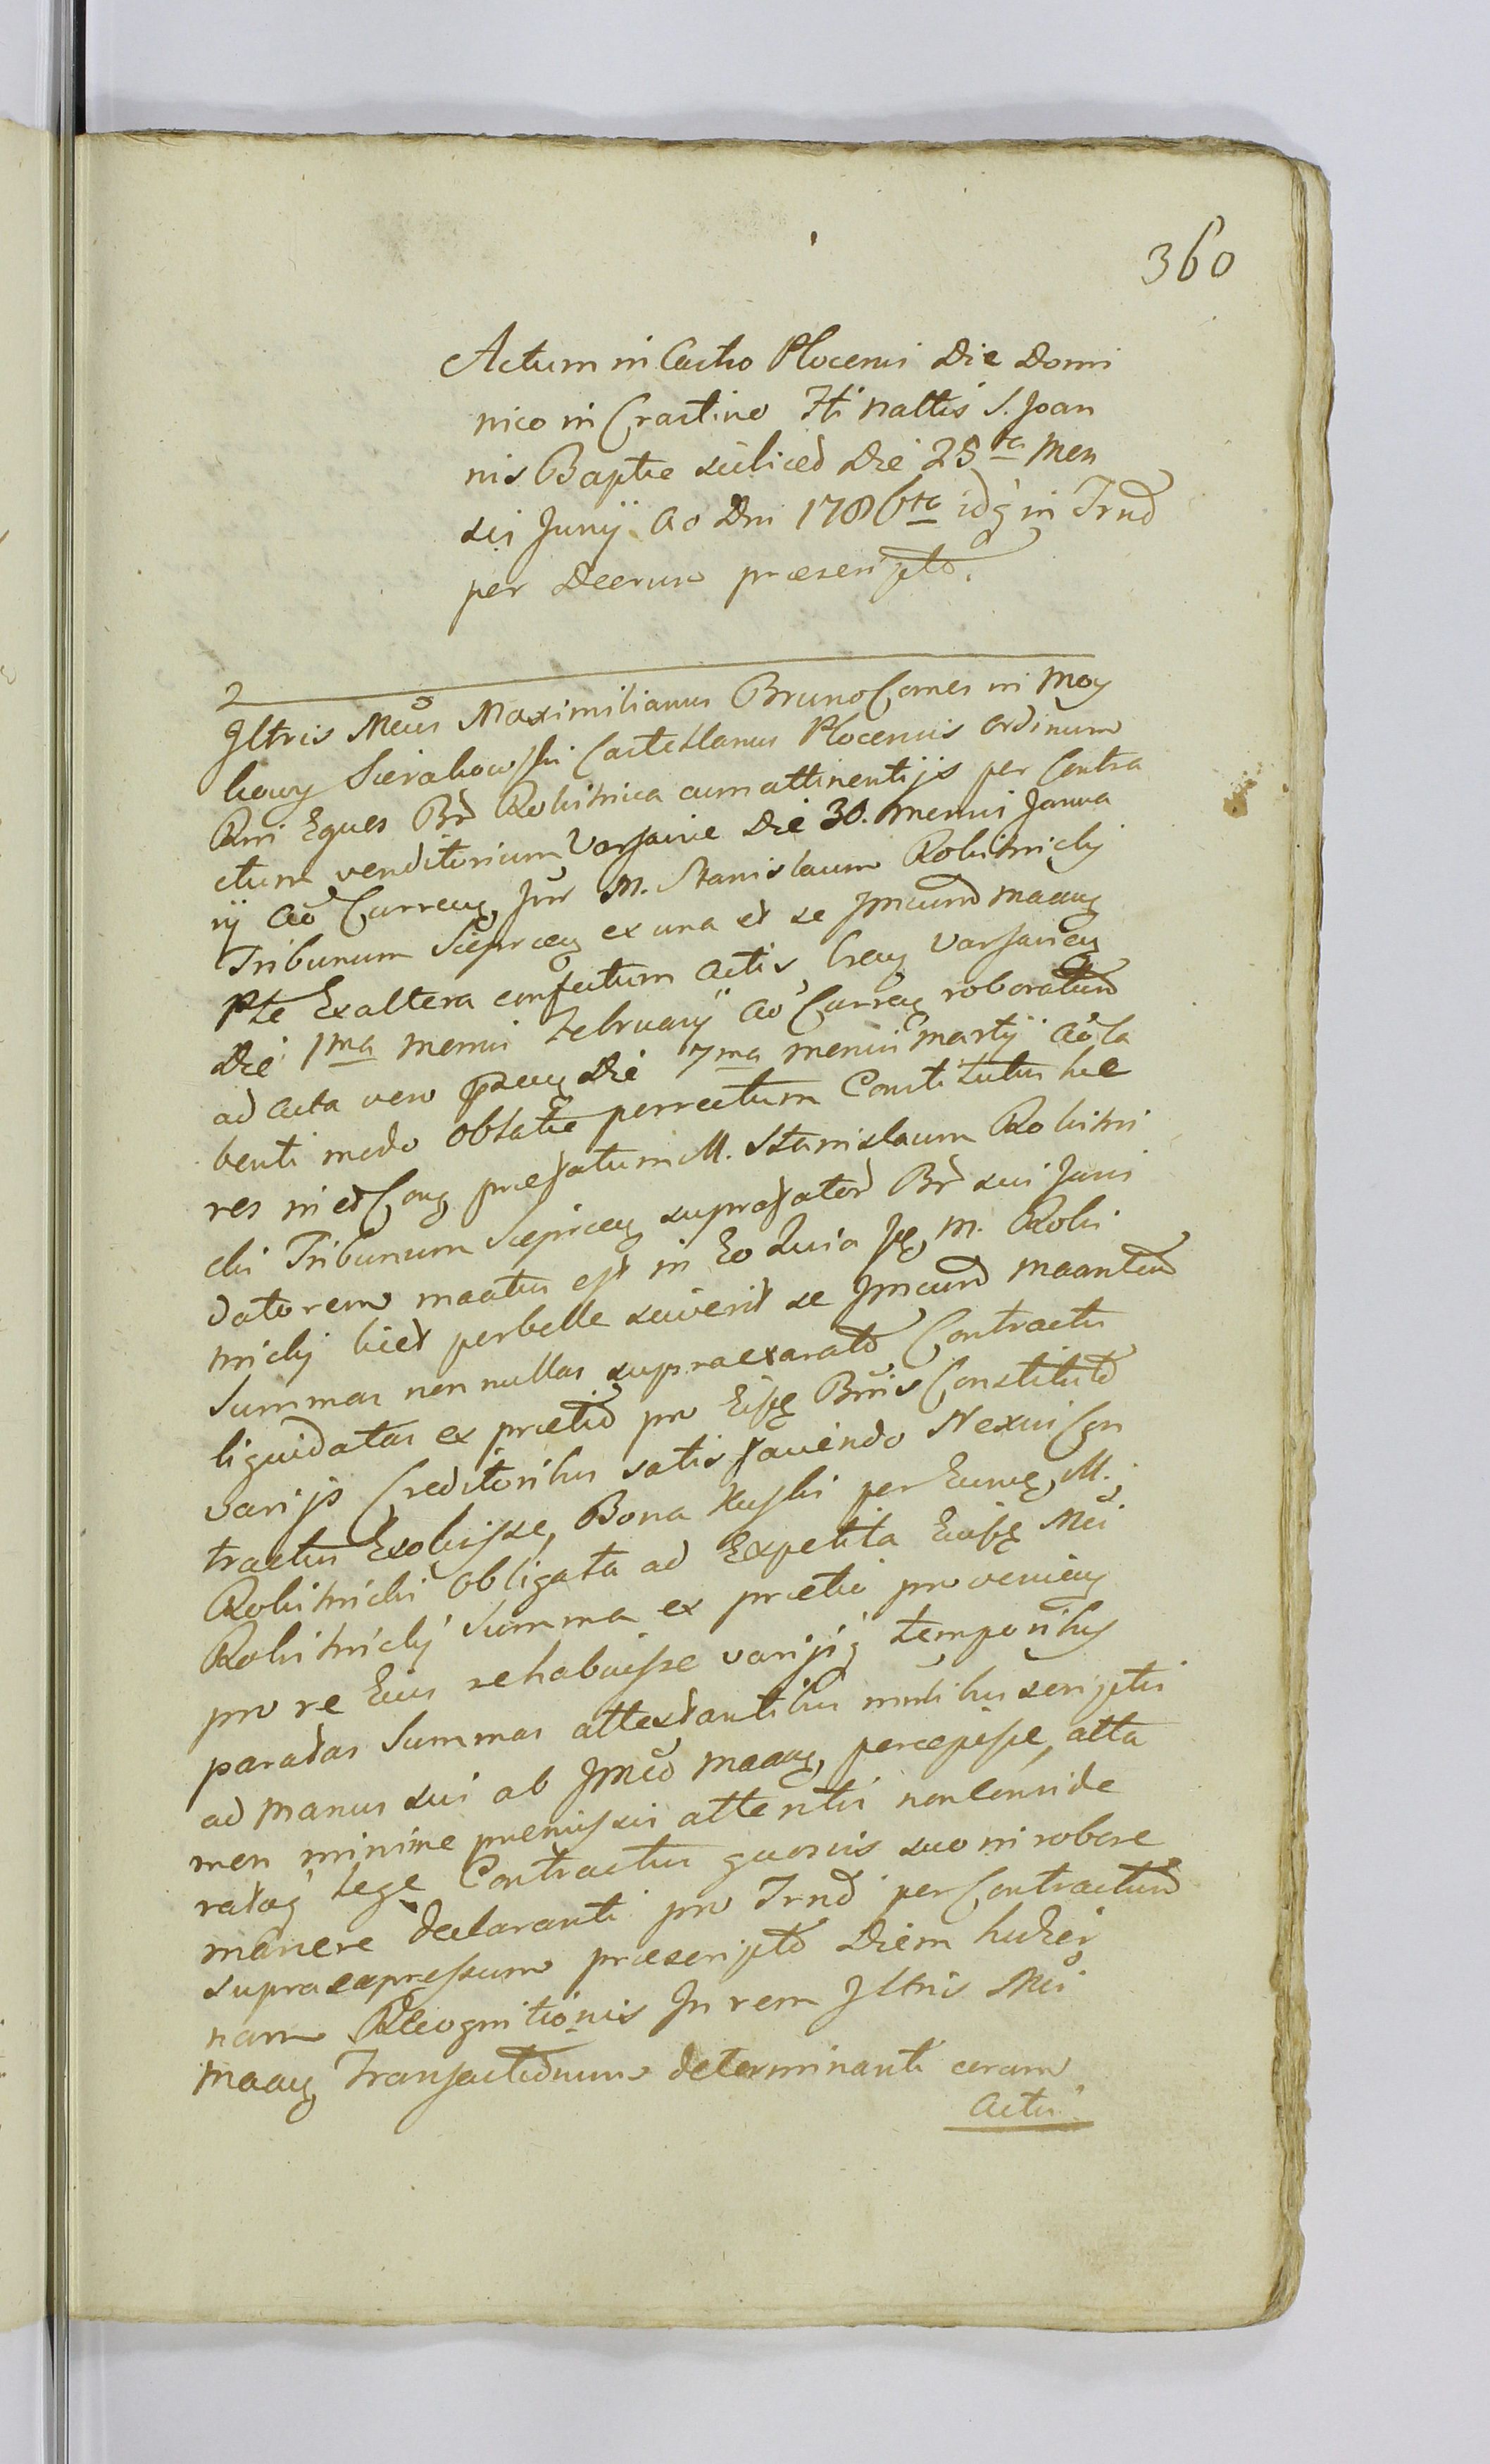 360
Actum in Castro Plocensi Die Domi
nico in Crastino Fti Nattis S. Joan
nis Baptæ scilicet Die 25ta Men
sis Junij Ao Dni 1786to idq in Trnd
per Decrum præscripto.
2
Iltris Mcus Maximilianus Bruno Comes in Moy
kowy Sierakowski Castellanus Plocensis Ordinum
Rni Eques Br Rokitnica cum attinentijs per Contra
ctum venditorium Varsaviæ Die 30. mensis Janua
rij Ao Curreng, Inr M. Stanislaum Rokitnicki
Tribunum Sieprceng ex una et se Imcum maang
Pte Ex altera confectum Actis Creng Varsavieng
Die 1ma mensis February Ao Curreng roboratum
ad Acta vero præng Die 7ma mensis Martij Ao La
benti modo Oblatæ porrectum Constitutus hæ
res in et Cong præfatum M. Stanislaum Rokitni
cki Tribunum Sieprceng suprafator Br sui Juris
datorem maatus est in Eo Quia Ipe, M. Rokit
nicki licet perbelle sciverit se Imcum maantem
Summas non nullas supraexarato Contractu
liquidatas ex prætio pro Eisq Bonis Constituto
varijs Creditoribus satisfaciendo Nexui Con
tractus Exolvisse, Bona Kuski per Eumq, M.
Rokitnicki Obligata ad Expetita Eiusq Mci
Rokitnicki Summa ex prætio provenieng
pro re Eius rehabuisse varijsq temporibus
paratas Summas attestantibus multibus scriptis
ad manus sui ab Imco maang, percepisse, atta
men minime præmissis attentis non conside
rataq lege Contractus quovis suo in robore
manere declaranti pro Trnd per Contractum
supra expressum præscripto Diem hodier
nam Recognitionis In rem Iltris Mci
maang Transactionum determinanti coram
Actis